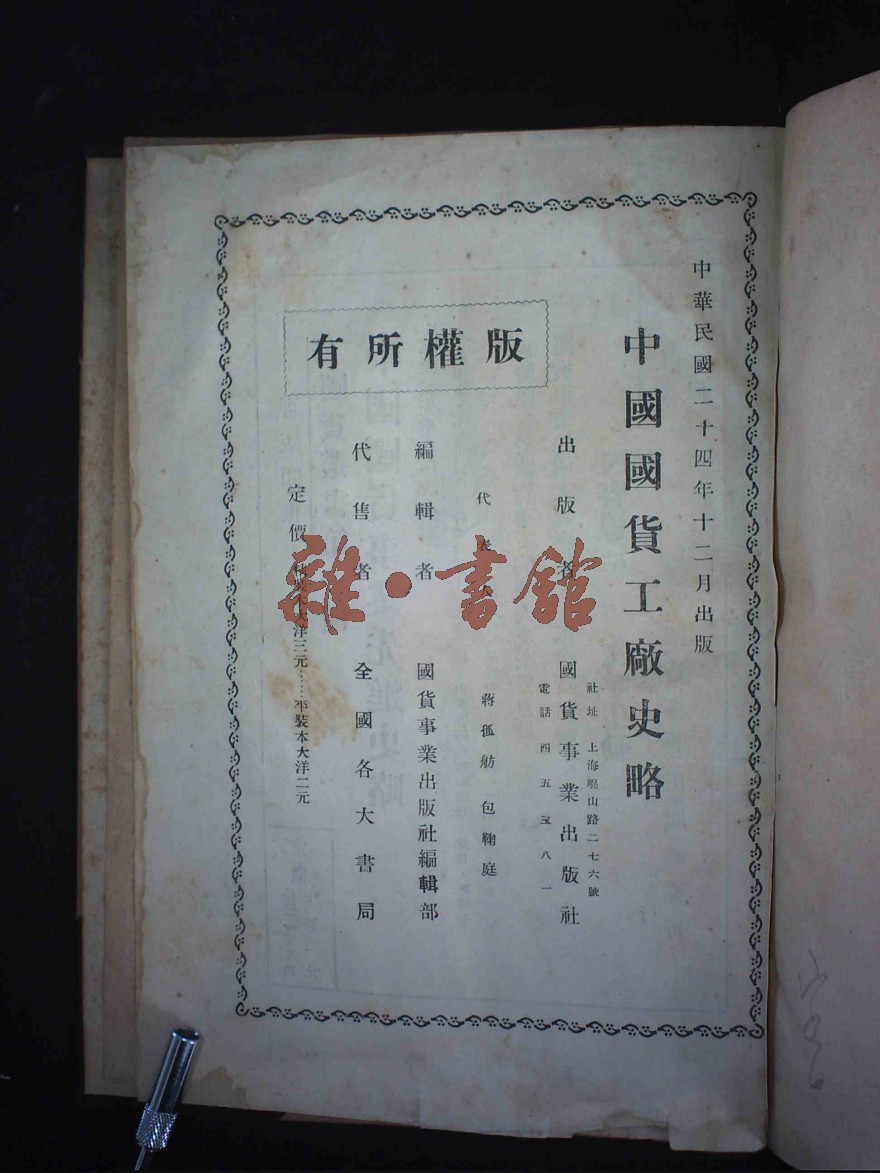 中華民國二十四年十二月出版
中國國貨工廠史略
社址 上海崐山路二七六號
出版者 國貨事業出版社
電話 四五 八一
代表 蔣孤舫 包鞠庭
編輯者 國貨事業出版社編輯部
代售者 全國各大書局
定價 大洋三元……平裝本大洋二元
版權所有
雜·書館